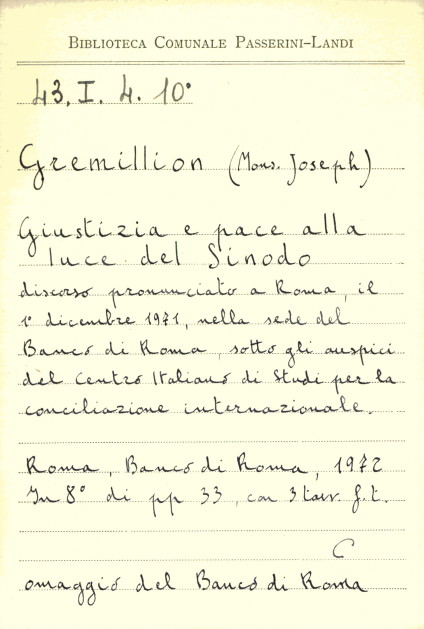 BIBLIOTECA COMUNALE PASSERINI-LANDI
43. I. 4. 10°
Gremillion (Mons. Joseph)
Giustizia e pace alla
luce del Sinodo
discorso pronunciato a Roma, il
1° dicembre 1971, nella sede del
Banco di Roma, sotto gli auspici
del Centro Italiano di Studi per la
conciliazione internazionale.
Roma, Banco di Roma, 1972
In 8° di pp 33, con 3 tavv. f. t.
C
omaggio del Banco di Roma